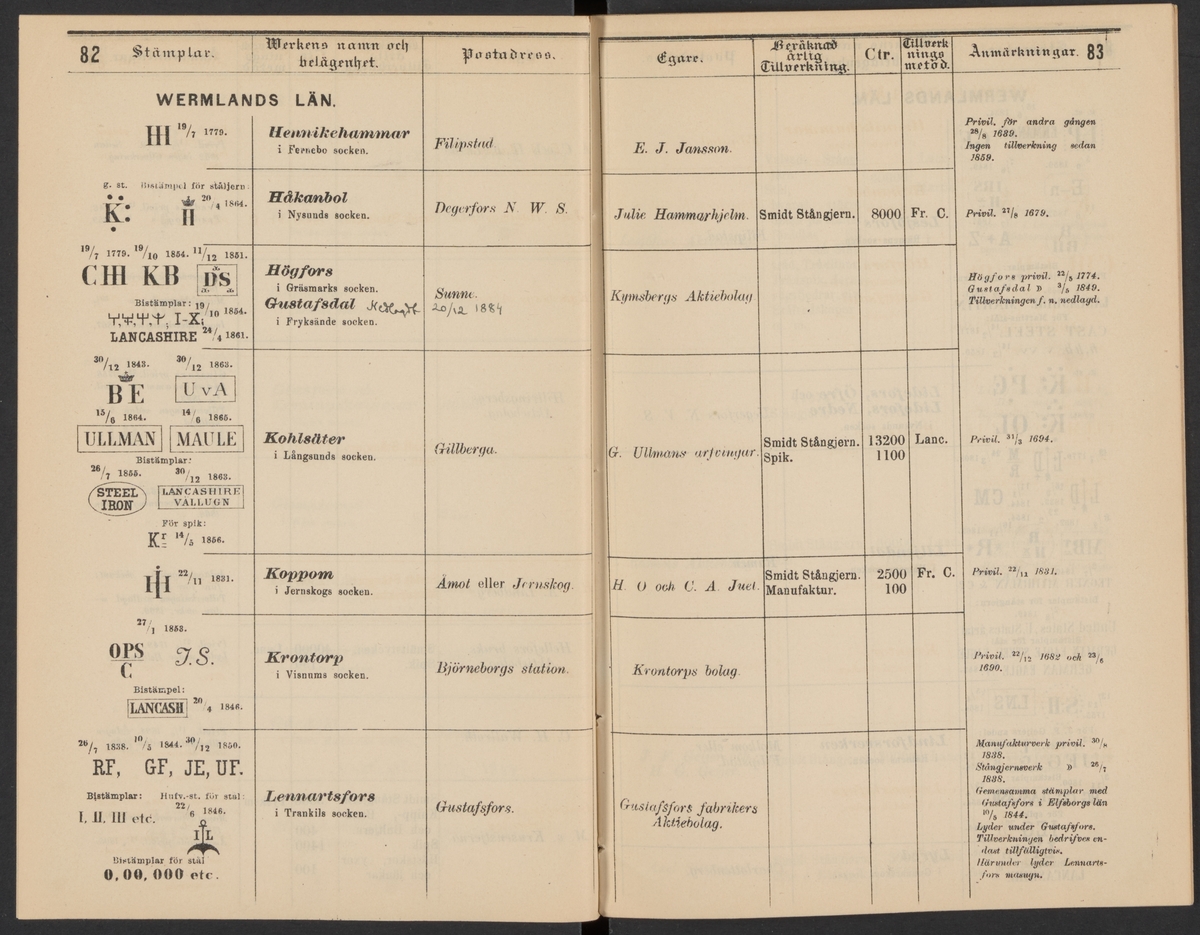 82 Stämplar. Werkens namn och belägenhet. Postadress. Egare. Beräknad årlig Tillverkning. Ctr. Tillverknings metod. Anmärkningar. 83
WERMLANDS LÄN.
19/7 1779.
Hennikehammar
i Fernebo socken.
Filipstad.
E. J. Jansson.
Privil. för andra gången
28/8 1689.
Ingen tillverkning sedan
1859.
g. st. Bistämpel för ståljern:
K: H 20/4 1864.
Håkanbol
i Nysunds socken.
Degerfors N. W. S.
Julie Hammarhjelm.
Smidt Stångjern. 8000 Fr. C.
Privil. 27/8 1679.
19/7 1779. 19/10 1854. 11/12 1851.
CHI KB DS
Bistämplar: 19/10 1854.
I-X;
LANCASHIRE 24/4 1861.
Högfors
i Gräsmarks socken.
Gustafsdal Nedlagdt
i Fryksände socken.
Sunne.
20/12 1884
Kymsbergs Aktiebolag
Högfors privil. 22/5 1774.
Gustafsdal D 3/5 1849.
Tillverkningen f. n. nedlagd.
30/12 1843. 30/12 1863.
BE UvA
15/6 1864. 14/6 1865.
ULLMAN MAULE
Bistämplar:
26/7 1855. 30/12 1863.
STEEL
IRON
LANCASHIRE
VALLUGN
För spik:
Kr 14/5 1856.
Kohlsäter
i Långsunds socken.
Gillberga.
G. Ullmans arfvingar.
Smidt Stångjern. 13200 Lanc.
Spik. 1100
Privil. 31/3 1694.
22/11 1831.
Koppom
i Jernskogs socken.
Åmot eller Jernskog.
H. O och C. A. Juel.
Smidt Stångjern. 2500 Fr. C.
Manufaktur. 100
Privil. 22/11 1831.
27/1 1853.
OPS
C
J.S.
Bistämpel:
LANCASH 20/4 1846.
Krontorp
i Visnums socken.
Björneborgs station.
Krontorps bolag.
Privil. 22/12 1682 och 23/6
1690.
26/7 1838. 10/5 1844. 30/12 1850.
RF, GF, JE, UF.
Bistämplar: Hufv.-st. för stål:
I, II, III etc. 22/6 1846.
I L
Bistämplar för stål
0, 00, 000 etc.
Lennartsfors
i Trankils socken.
Gustafsfors.
Gustafsfors fabrikers
Aktiebolag.
Manufakturverk privil. 30/8
1838.
Stångjernsverk D 26/7
1838.
Gemensamma stämplar med
Gustafsfors i Elfsborgs län
10/5 1844.
Lyder under Gustafsfors.
Tillverkningen bedrifves en-
dast tillfälligtvis.
Härunder lyder Lennarts-
fors masugn.